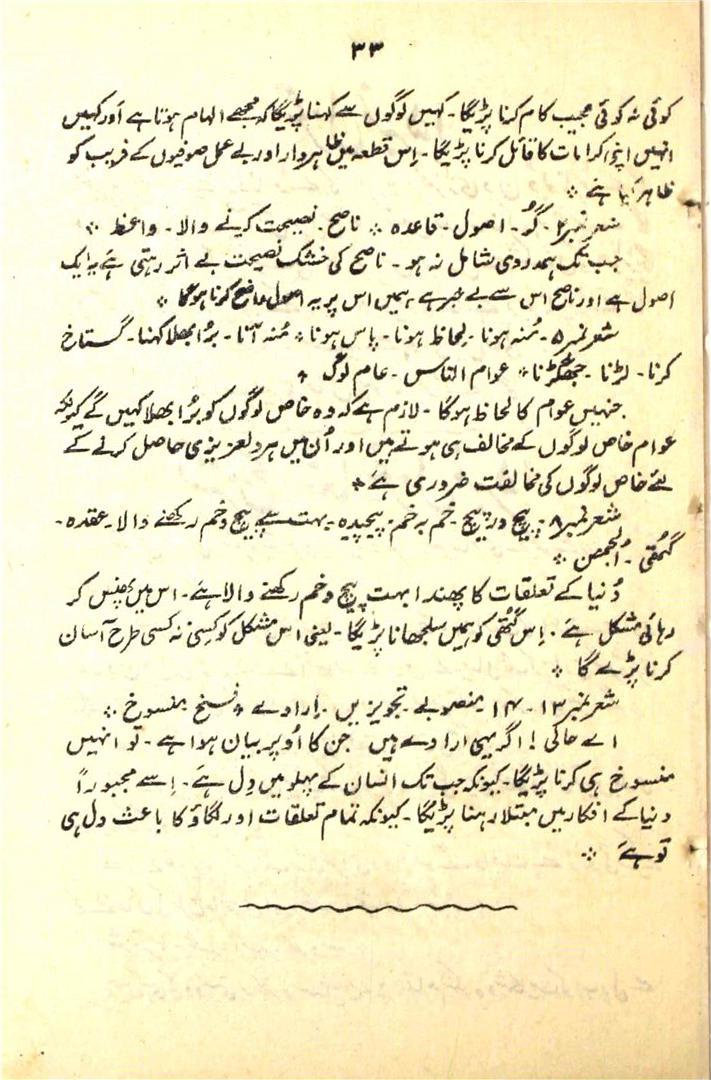 ۳۳
کوئی نہ کوئی عجیب کام کرنا پڑیگا۔ کہیں لوگوں سے کہنا پڑیگا کہ مجھے الہام ہوتا ہے اور کہیں
انہیں اپنی کرامات کا قائل کرنا پڑیگا۔ اِس قطعہ میں ظاہردار اور بے عمل صوفیوں کے فریب کو
ظاہر کیا ہے ؞
شعر نمبر ۲۔ گُر۔ اصول۔ قاعدہ ؞ ناصح۔ نصیحت کرنے والا۔ واعظ ؞
جب تک ہمدردی شامل نہ ہو۔ ناصح کی خشک نصیحت بے اثر رہتی ہے یہ ایک
اصول ہے اور ناصح اس سے بے خبر ہے، ہمیں اس پر یہ اصول واضح کرنا ہوگا ؞
شعر نمبر ۵۔ مُنہ ہونا۔ لحاظ ہونا۔ پاس ہونا ؞ مُنہ آنا۔ بُرا بھلا کہنا۔ گستاخی
کرنا۔ لڑنا۔ جھگڑنا ؞ عوام الناس۔ عام لوگ ؞
جنہیں عوام کا لحاظ ہوگا۔ لازم ہے کہ وہ خاص لوگوں کو بُرا بھلا کہیں گے کیونکہ
عوام خاص لوگوں کے مخالف ہی ہوتے ہیں اور اُن میں ہر دلعزیزی حاصل کرنے کے
لئے خاص لوگوں کی مخالفت ضروری ہے ؞
شعر نمبر ۸۔ پیچ در پیچ۔ خم بہ خم۔ پیچیدہ۔ بہت سے پیچ و خم رکھنے والا۔ عقدہ۔
گتھی۔ اُلجھن ؞
دُنیا کے تعلقات کا پھندا بہت پیچ و خم رکھنے والا ہے۔ اس میں پھنس کر
رہائی مشکل ہے۔ اِس گتھی کو ہمیں سلجھانا پڑیگا۔ یعنی اس مشکل کو کسی نہ کسی طرح آسان
کرنا پڑے گا ؞
شعر نمبر ۱۳۔ ۱۴۔ منصوبے۔ تجویزیں۔ اِرادے ؞ فسخ۔ منسوخ ؞
اے حاکی! اگر یہی ارادے ہیں جن کا اُوپر بیان ہوا ہے۔ تو انہیں
منسوخ ہی کرنا پڑیگا۔ کیونکہ جب تک انسان کے پہلو میں دِل ہے۔ اِسے مجبوراً
دنیا کے افکار میں مبتلا رہنا پڑیگا۔ کیونکہ تمام تعلقات اور لگاؤ کا باعث دل ہی
تو ہے ؞